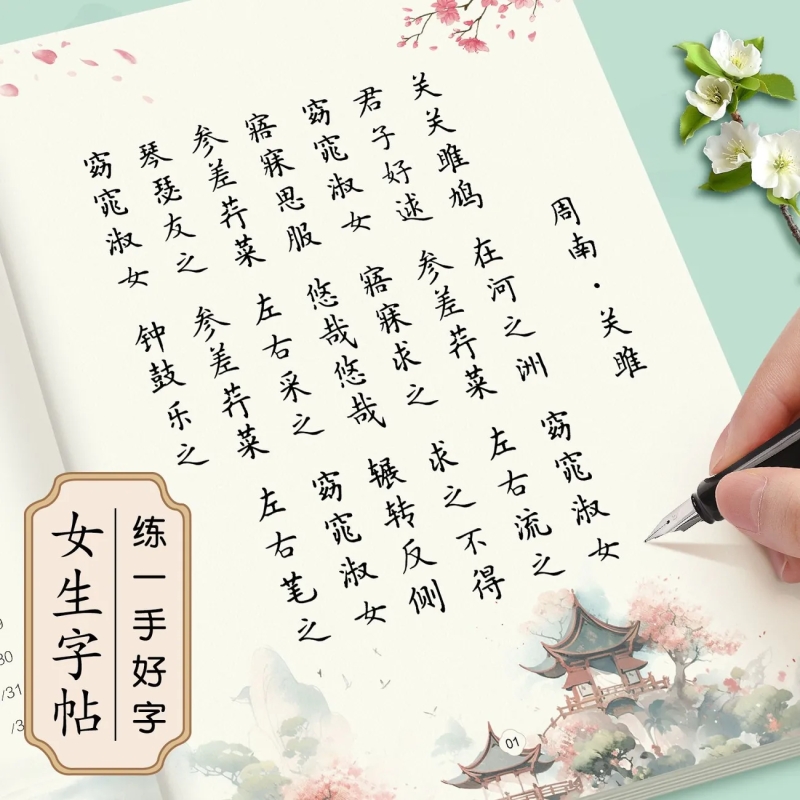 周南·关雎
关关雎鸠 在河之洲 窈窕淑女
君子好逑 参差荇菜 左右流之
窈窕淑女 寤寐求之 求之不得
寤寐思服 悠哉悠哉 辗转反侧
参差荇菜 左右采之 窈窕淑女
琴瑟友之 参差荇菜 左右芼之
窈窕淑女 钟鼓乐之
01
练一手好字
女生字帖
30
/31